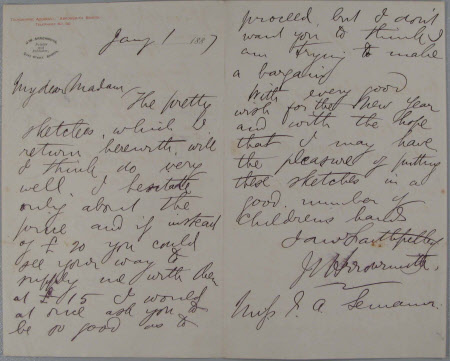 Jany 1 1887
My dear Madam,
The pretty
sketches, which I
return herewith, will
I think do very
well. I hesitate
only about the
price and if instead
of £ 20 you could
see your way to
supply me with them
at £ 15 I would
at once ask you to
be so good as to
proceed, but I don't
want you to think I
am trying to make
a bargain
With every good
wish for the New Year
and with the hope
that I may have
the pleasure of putting
these sketches in a
good number of
childrens hands
I am Faithfully
J W Arrowsmith.
Miss E. A.